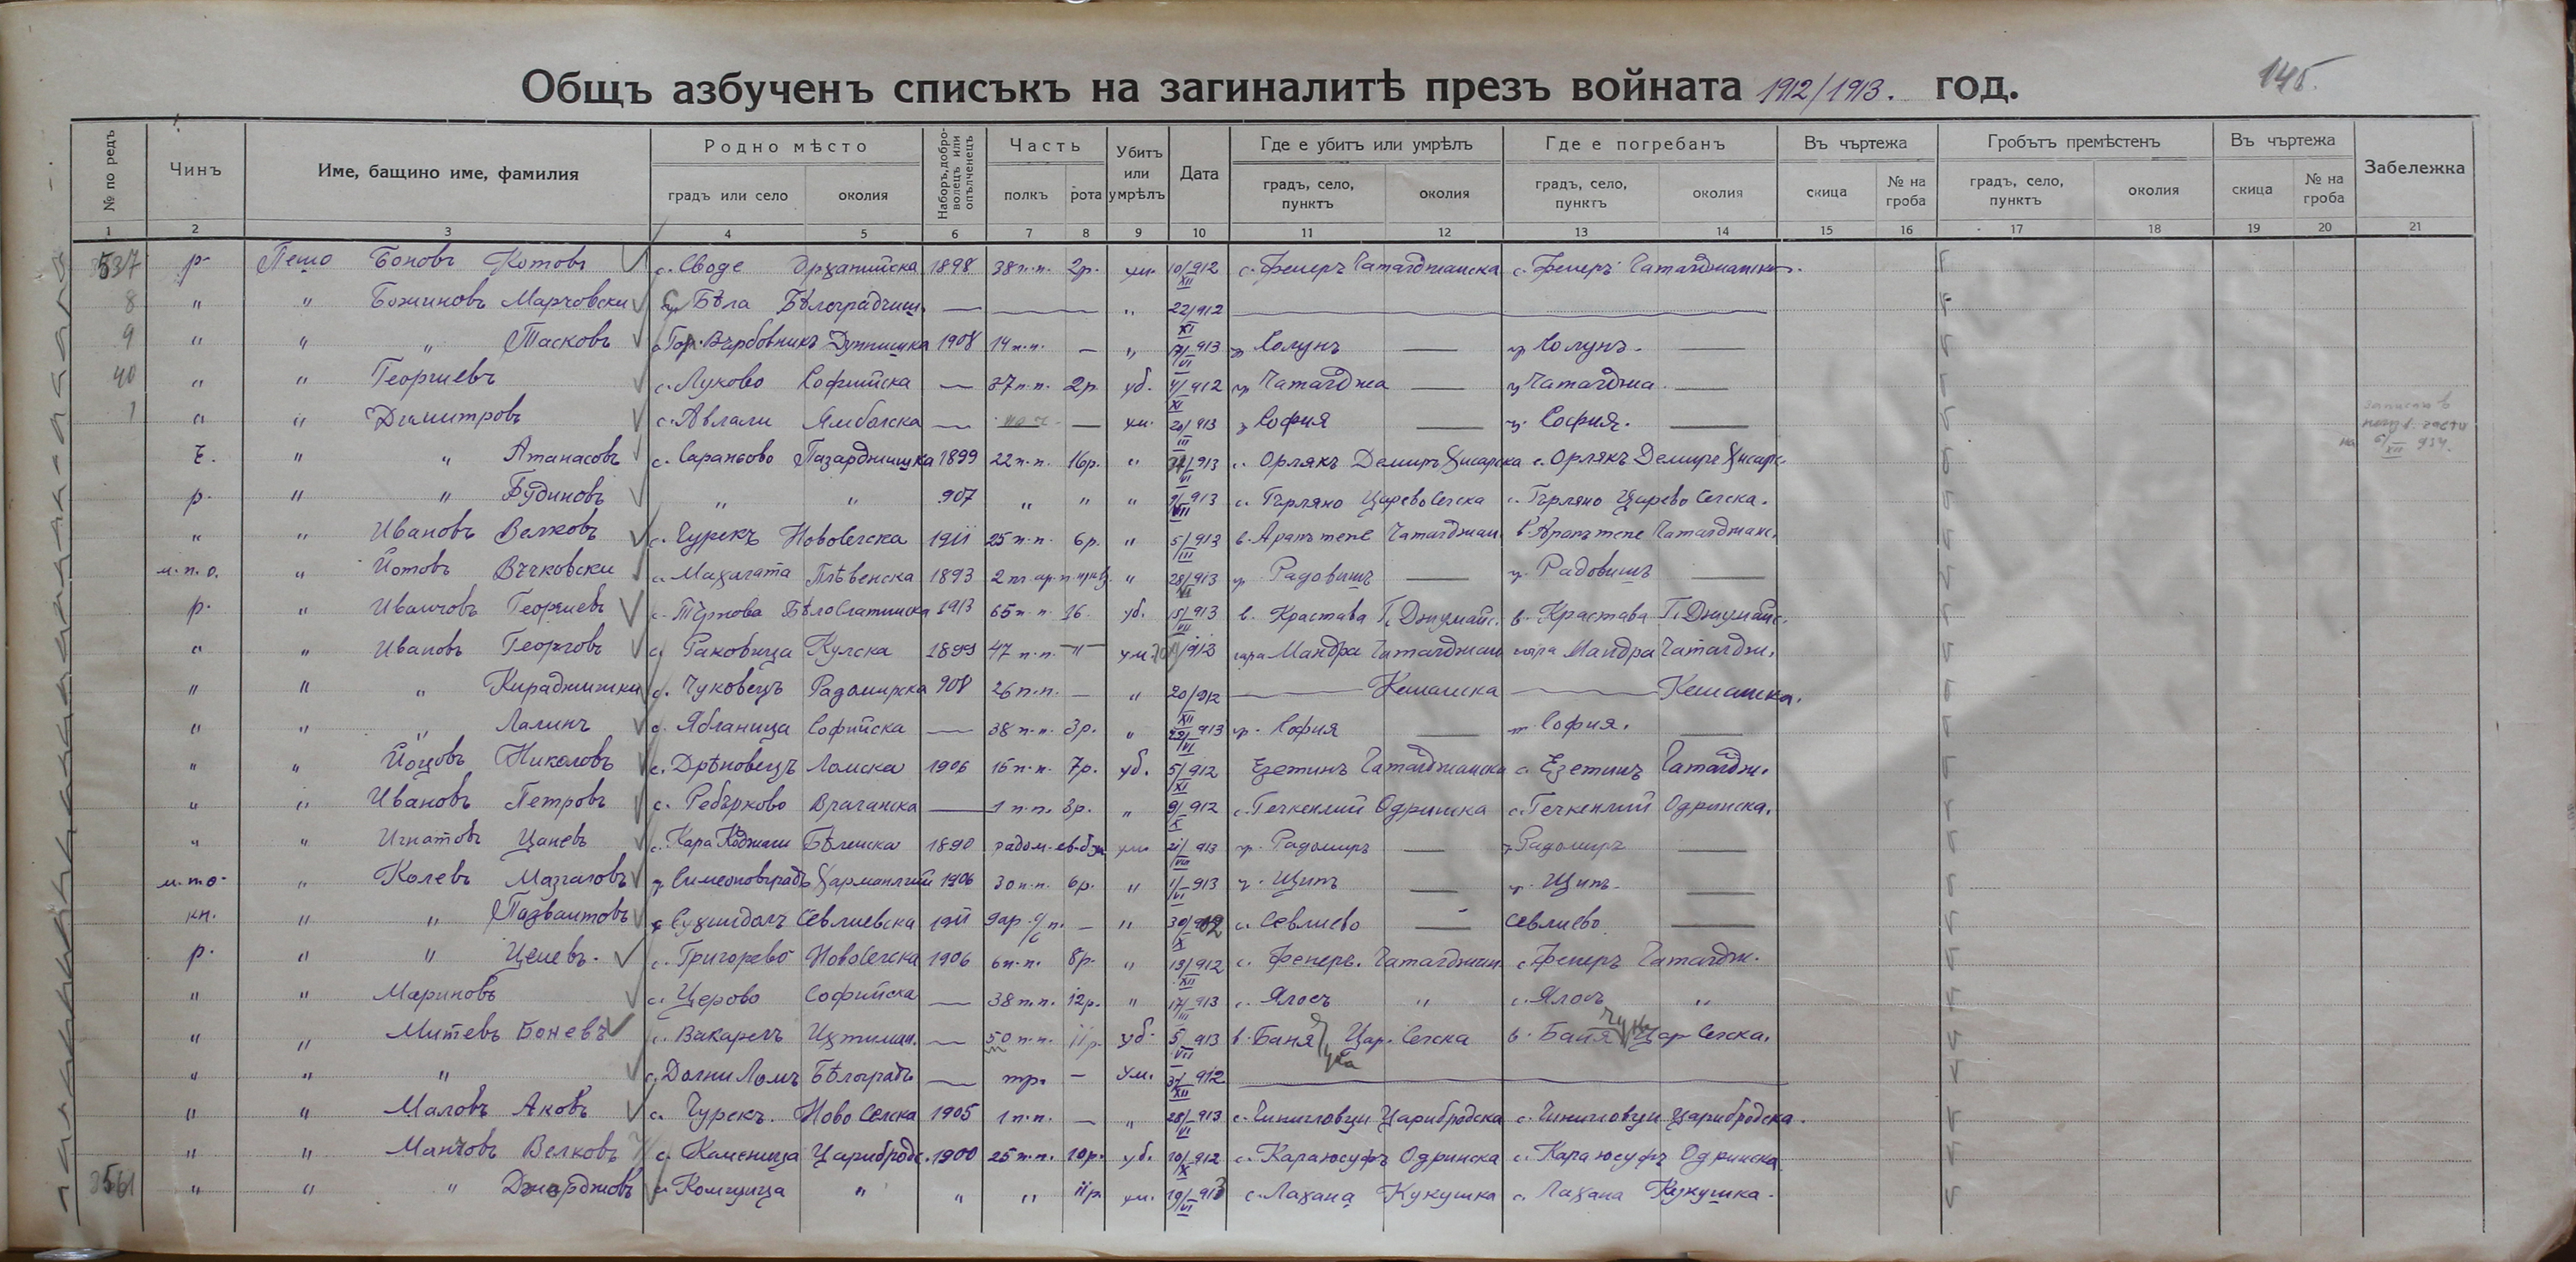 145.
Общъ азбученъ списъкъ на загиналитѣ презъ войната 1912/1913. год.
№ по редъ Чинъ Име, бащино име, фамилия Родно мѣсто Наборъ, доброволецъ или опълченецъ Часть Убитъ или умрѣлъ Дата Где е убитъ или умрѣлъ Где е погребанъ Въ чъртежа Гробътъ премѣстенъ Въ чъртежа Забележка
градъ или село околия полкъ рота градъ, село, пунктъ околия градъ, село, пунктъ околия скица № на гроба градъ, село, пунктъ околия скица № на гроба
1 2 3 4 5 6 7 8 9 10 11 12 13 14 15 16 17 18 19 20 21
537 р. Пешо Боновъ Котовъ с. Своде Орханийска 1898 38 п.п. 2р. ум. 10/XII 912 с. Фенеръ Чаталджанска с. Фенеръ Чаталджанск.
8 " " Божиновъ Марковски Бѣла Бѣлоградчиш. — — " 22/XI 912 —
9 " " " Тасковъ с. Гор. Върбовникъ Дупнишка 1908 14 п.п. — " 17/VI 913 гр. Солунъ — гр. Солунъ. —
40 " " Георгиевъ с. Луково Софийска — 37 п.п. 2р. уб. 4/XI 912 гр. Чаталджа — гр. Чаталджа —
1 " " Димитровъ с. Авлали Ямболска — — ум. 20/III 913 г. София — гр. София. —
на 6/XII 934.
Е. " " Атанасовъ с. Сараньово Пазарджишка 1899 22 п.п. 16р. " /VI 913 с. Орлякъ Демиръ Хисарска с. Орлякъ Демиръ Хисарс.
р. " " Будиновъ " " 907 " " " 9/VII 913 с. Гърляно Царево Селска с. Гърляно Царево Селска.
" " Ивановъ Велковъ с. Чурекъ Новоселска 1911 25 п.п. 6р. " 5/III 913 в. Арапъ тепе Чаталджан. в. Арапъ тепе Чаталджанс.
м.п.о. " Йотовъ Вѫчковски с. Махалата Плѣвенска 1893 2 пл. ар. п. " 28/VI 913 гр. Радовишъ — гр. Радовишъ —
р. " Иванчовъ Георгиевъ с. Търнова Бѣлослатинска 1913 65 п.п. 16 уб. 15/VII 913 в. Крастава Г. Джумайс. в. Крастава Г. Джумайс.
" " Ивановъ Георговъ с. Раковица Кулска 1899 47 п.п. — ум. 913 гара Мандра Чаталджан гара Мандра Чаталдж.
" " " Кираджийски с. Чуковецъ Радомирска 908 26 п.п. — " 20/XII 912 — Кешанска — Кешанска.
" " " Лалинъ с. Ябланица Софийска — 38 п.п. 3р. " 22/VI 913 гр. София — гр. София. —
" " Йоцовъ Николовъ с. Дрѣновецъ Ломска 1906 15 п.п. 7р. уб. 5/XI 912 Езетинъ Чаталджанска с. Езетинъ Чаталдж.
" " Ивановъ Петровъ с. Ребърково Врачанска — 1 п.п. 3р. " 9/X 912 с. Гечкенлий Одринска с. Гечкенлий Одринска.
" " Игнатовъ Цаневъ с. Кара Коджали Бѣленска 1890 радом. ум. 21/VIII 913 гр. Радомиръ — гр. Радомиръ —
м.т.о. " Колевъ Мазгаловъ гр. Симеоновградъ Харманлий 1906 30 п.п. 6р. " 1/VI 913 г. Щипъ — гр. Щипъ. —
кн. " " Пазвантовъ с. Сухиндолъ Севлиевска 1911 9 ар. с/с п. — " 30/X 912 с. Севлиево — Севлиево —
р. " " Ценевъ. с. Григорево Новоселска 1906 6 п.п. 8р. " 13/XII 912 с. Фенеръ. Чаталджан. с. Фенеръ Чаталдж.
" " Мариновъ с. Церово Софийска — 38 п.п. 12р. " 17/III 913 с. Ялосъ " с. Ялосъ "
" " Митевъ Боневъ с. Вакарелъ Ихтиман. — 50 п.п. 11р. уб. 5/VII 913 в. Баня чука Цар. Селска в. Баня чука Цар Селска.
" " " с. Долни Ломъ Бѣлоградч — тр. — ум. 31/XII 912 —
" " Маловъ Аковъ с. Чурекъ. Ново Селска 1905 1 п.п. — " 28/VI 913 с. Чинигловци Царибродска с. Чинигловци Царибродска.
" " Манчовъ Велковъ с. Каменица Царибродс. 1900 25 п.п. 10р. уб. 20/X 912 с. Караюсуфъ Одринска с. Караюсуфъ Одринска
3561 " " " Джорджовъ с. Комщица " " " 11р. ум. 19/VI 913 с. Лахана Кукушка с. Лахана Кукушка.